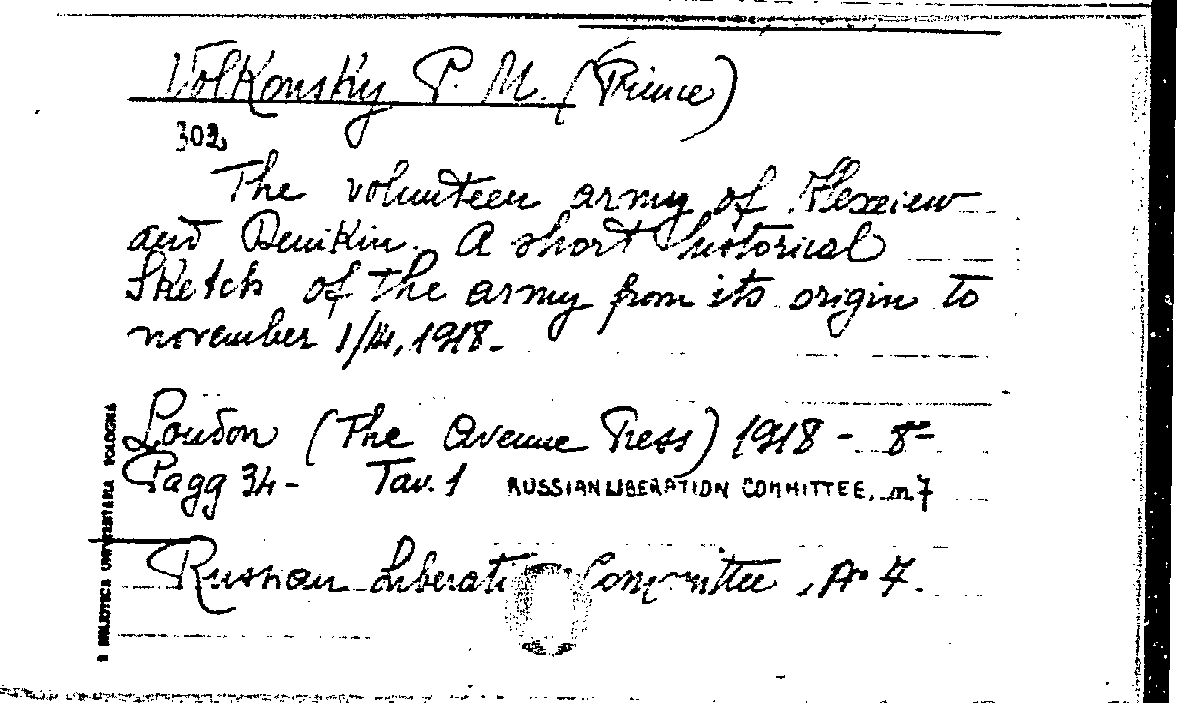 Volkonsky P. M. (Prince)
302
The volunteer army of Alexeiew
and Denikin. A short historical
Sketch of the army from its origin to
november 1/14, 1918-
London (The Avenue Press) 1918 - 8º
Pagg 34 - Tav. 1 RUSSIAN LIBERATION COMMITTEE, n 7
Russian Liberati Committee, Nº 7.
BIBLIOTECA UNIVERSITARIA BOLOGNA